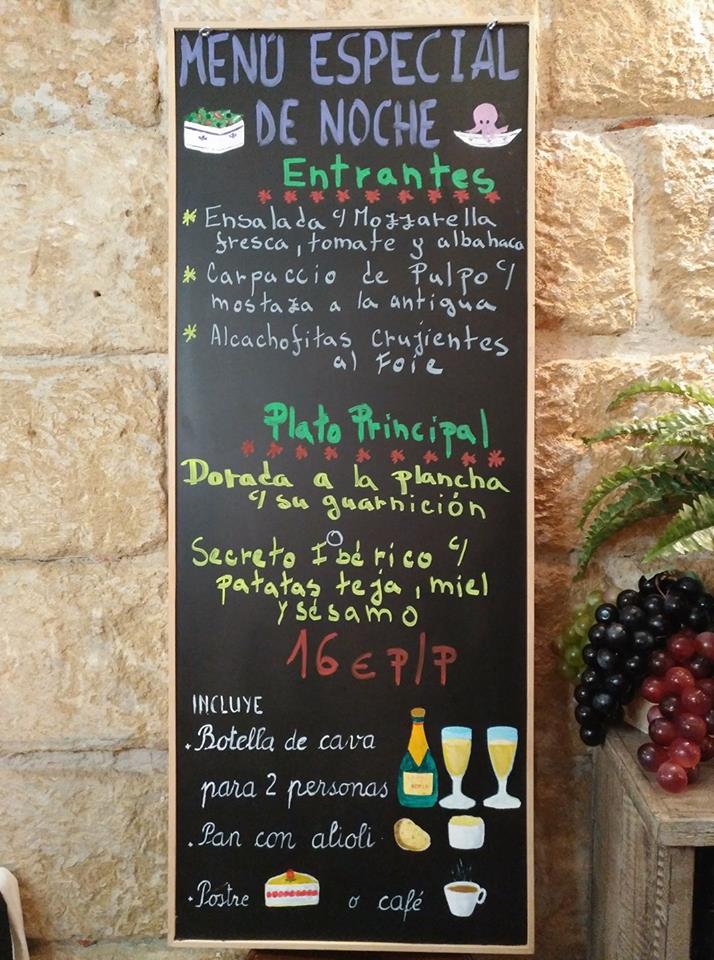 MENÚ ESPECIAL
DE NOCHE
Entrantes
* Ensalada c/ Mozzarella
fresca, tomate y albahaca
* Carpaccio de Pulpo c/
mostaza a la antigua
* Alcachofitas crujientes
al Foie
Plato Principal
Dorada a la plancha
c/ su guarnición
Secreto Ibérico c/
patatas teja, miel
y sésamo
16 € P/P
INCLUYE
. Botella de cava
para 2 personas
. Pan con alioli
. Postre o café